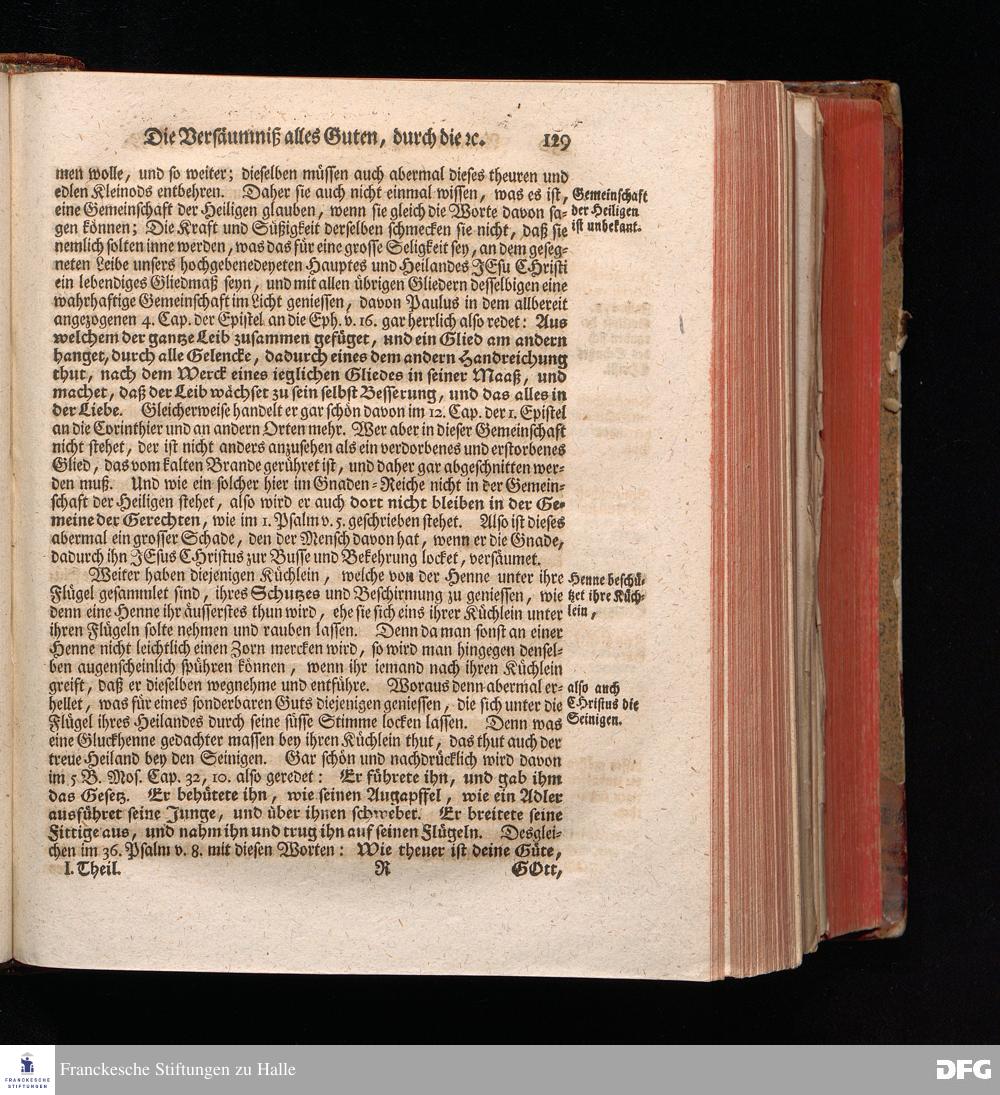 Die Versäumniß alles Guten, durch die ꝛc. 129
men wolle, und so weiter; dieselben müssen auch abermal dieses theuren und
edlen Kleinods entbehren. Daher sie auch nicht einmal wissen, was es ist,
eine Gemeinschaft der Heiligen glauben, wenn sie gleich die Worte davon sa-
gen können; Die Kraft und Süßigkeit derselben schmecken sie nicht, daß sie
nemlich solten inne werden, was das für eine grosse Seligkeit sey, an dem geseg-
neten Leibe unsers hochgebenedeyeten Hauptes und Heilandes JEsu CHristi
ein lebendiges Gliedmaß seyn, und mit allen übrigen Gliedern desselbigen eine
wahrhaftige Gemeinschaft im Licht geniessen, davon Paulus in dem allbereit
angezogenen 4. Cap. der Epistel an die Eph. v. 16. gar herrlich also redet: Aus
welchem der gantze Leib zusammen gefüget, und ein Glied am andern
hanget, durch alle Gelencke, dadurch eines dem andern Handreichung
thut, nach dem Werck eines ieglichen Gliedes in seiner Maaß, und
machet, daß der Leib wächset zu sein selbst Besserung, und das alles in
der Liebe. Gleicherweise handelt er gar schön davon im 12. Cap. der 1. Epistel
an die Corinthier und an andern Orten mehr. Wer aber in dieser Gemeinschaft
nicht stehet, der ist nicht anders anzusehen als ein verdorbenes und erstorbenes
Glied, das vom kalten Brande gerühret ist, und daher gar abgeschnitten wer-
den muß. Und wie ein solcher hier im Gnaden-Reiche nicht in der Gemein-
schaft der Heiligen stehet, also wird er auch dort nicht bleiben in der Ge-
meine der Gerechten, wie im 1. Psalm v. 5. geschrieben stehet. Also ist dieses
abermal ein grosser Schade, den der Mensch davon hat, wenn er die Gnade,
dadurch ihn JEsus CHristus zur Busse und Bekehrung locket, versäumet.
Weiter haben diejenigen Küchlein, welche von der Henne unter ihre
Flügel gesammlet sind, ihres Schutzes und Beschirmung zu geniessen, wie
denn eine Henne ihr äusserstes thun wird, ehe sie sich eins ihrer Küchlein unter
ihren Flügeln solte nehmen und rauben lassen. Denn da man sonst an einer
Henne nicht leichtlich einen Zorn mercken wird, so wird man hingegen densel-
ben augenscheinlich spühren können, wenn ihr iemand nach ihren Küchlein
greift, daß er dieselben wegnehme und entführe. Woraus denn abermal er-
hellet, was für eines sonderbaren Guts diejenigen geniessen, die sich unter die
Flügel ihres Heilandes durch seine süsse Stimme locken lassen. Denn was
eine Gluckhenne gedachter massen bey ihren Küchlein thut, das thut auch der
treue Heiland bey den Seinigen. Gar schön und nachdrücklich wird davon
im 5 B. Mos. Cap. 32, 10. also geredet: Er führete ihn, und gab ihm
das Gesetz. Er behütete ihn, wie seinen Augapffel, wie ein Adler
ausführet seine Junge, und über ihnen schwebet. Er breitete seine
Fittige aus, und nahm ihn und trug ihn auf seinen Flügeln. Desglei-
chen im 36. Psalm v. 8. mit diesen Worten: Wie theuer ist deine Güte,
I. Theil. R GOtt,
Gemeinschaft
der Heiligen
ist unbekant.
Henne beschü-
tzet ihre Küch-
lein,
also auch
CHristus die
Seinigen.
FRANCKESCHE
STIFTUNGEN
Franckesche Stiftungen zu Halle
DFG